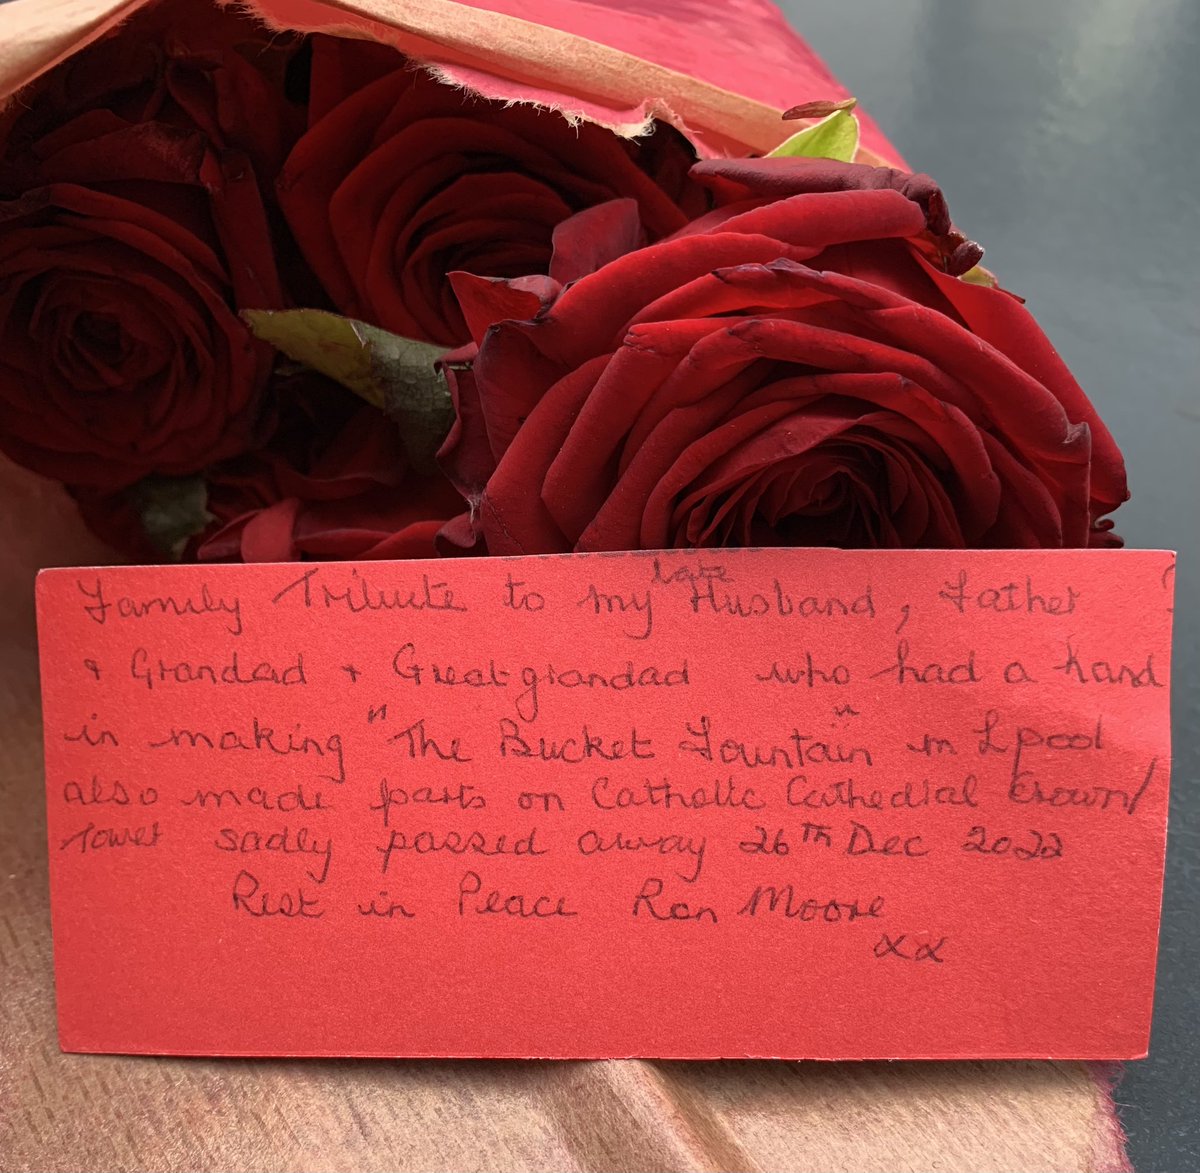 Family Tribute to my late Husband, Father
& Grandad + Great grandad who had a hand
in making "The Bucket Fountain" in Lpool
also made parts on Catholic Cathedral Crown/
Tower sadly passed away 26TH Dec 2022
Rest in Peace Ron Moore
xx